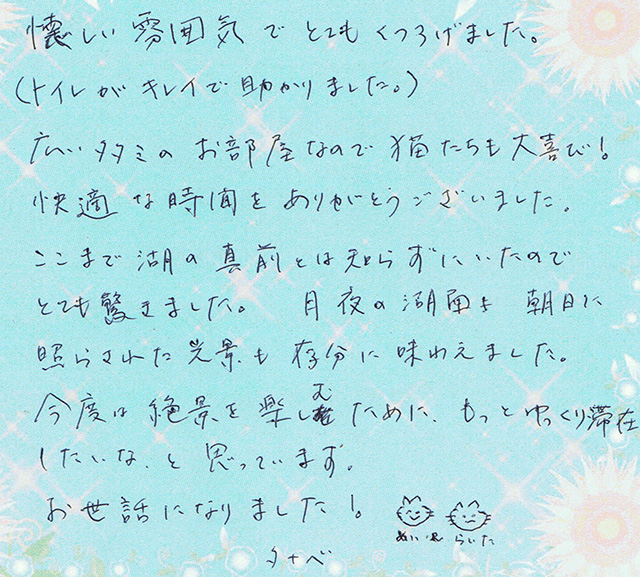 懐しい雰囲気でとてもくつろげました。
(トイレがキレイで助かりました。)
広いタタミのお部屋なので猫たちも大喜び!
快適な時間をありがとうございました。
ここまで湖の真前とは知らずにいたので
とても驚きました。 月夜の湖面も朝日に
照らされた光景も存分に味わえました。
今度は絶景を楽しむために、もっとゆっくり滞在
したいな、と思っています。
お世話になりました!
らいた
タナベ